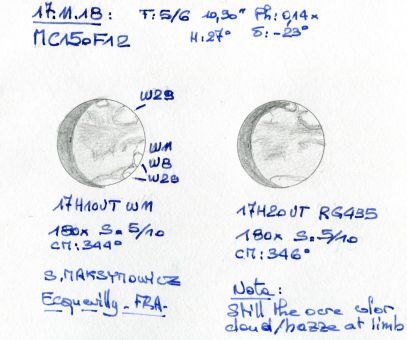 17.11.18: T:5/6 10,30" Ph:0,14x
MC150F12 H:27° δ:-23°
W29
W11
W8
W29
17H10UT W11
180x S=5/10
CM:344°
S.MAKSYMOWICZ
Ecquevilly - FRA-
17H20UT RG435
180x S=5/10
CM:346°
Nota:
Still the ocre color
cloud/hazze at limb